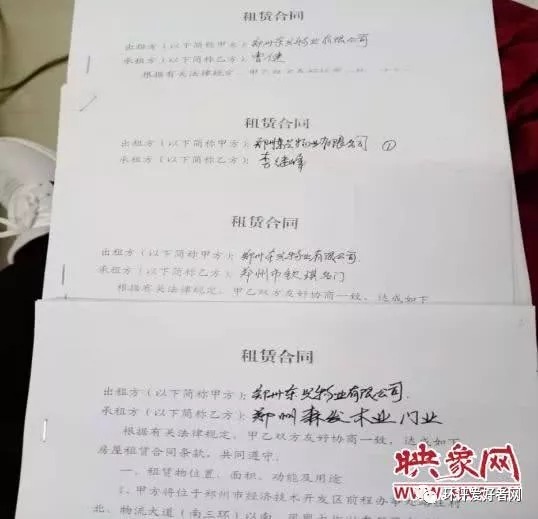 租赁合同
出租方(以下简称甲方):郑州东兴物业有限公司
承租方(以下简称乙方):曹健
根据有关法律规定,甲乙双方友好协商一致,
租赁合同
出租方(以下简称甲方):郑州东兴物业有限公司 ①
承租方(以下简称乙方):李继峰
租赁合同
出租方(以下简称甲方):郑州东兴物业有限公司.
承租方(以下简称乙方):郑州市钦琪名门
根据有关法律规定,甲乙双方友好协商一致,达成如下
租赁合同
出租方(以下简称甲方):郑州东兴物业有限公司.
承租方(以下简称乙方):郑州森发木业门业
根据有关法律规定,甲乙双方友好协商一致,达成如下
房屋租赁合同条款,共同遵守.
一、租赁物位置、面积、功能及用途
1、甲方将位于郑州市经济技术开发区前程办事处
北、物流大道(南三环)以南
映象网
环评爱好者网